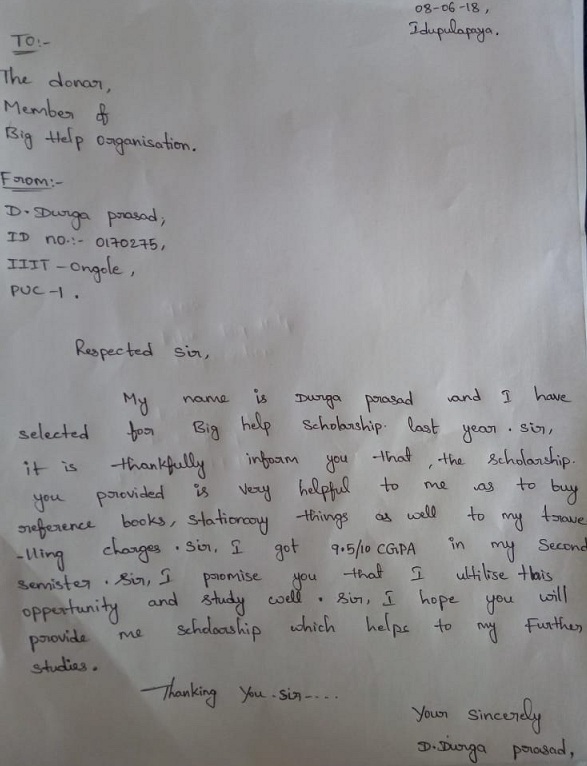 08-06-18,
Idupulapaya.
To:-
The donar,
Member of
Big Help organisation.
From:-
D. Durga prasad,
ID no.:- 0170275,
IIIT - Ongole,
PUC - 1.
Respected sir,
My name is Durga prasad and I have
selected for Big help scholarship last year. sir,
it is thankfully inform you that, the scholarship
you provided is very helpful to me as to buy
reference books, stationary things as well to my trave
-lling charges. sir, I got 9.5/10 CGPA in my Second
semister. sir, I promise you that I ultilise this
oppertunity and study well. sir, I hope you will
provide me scholarship which helps to my Further
studies.
Thanking You sir----
Your sincerely
D. Durga prasad,